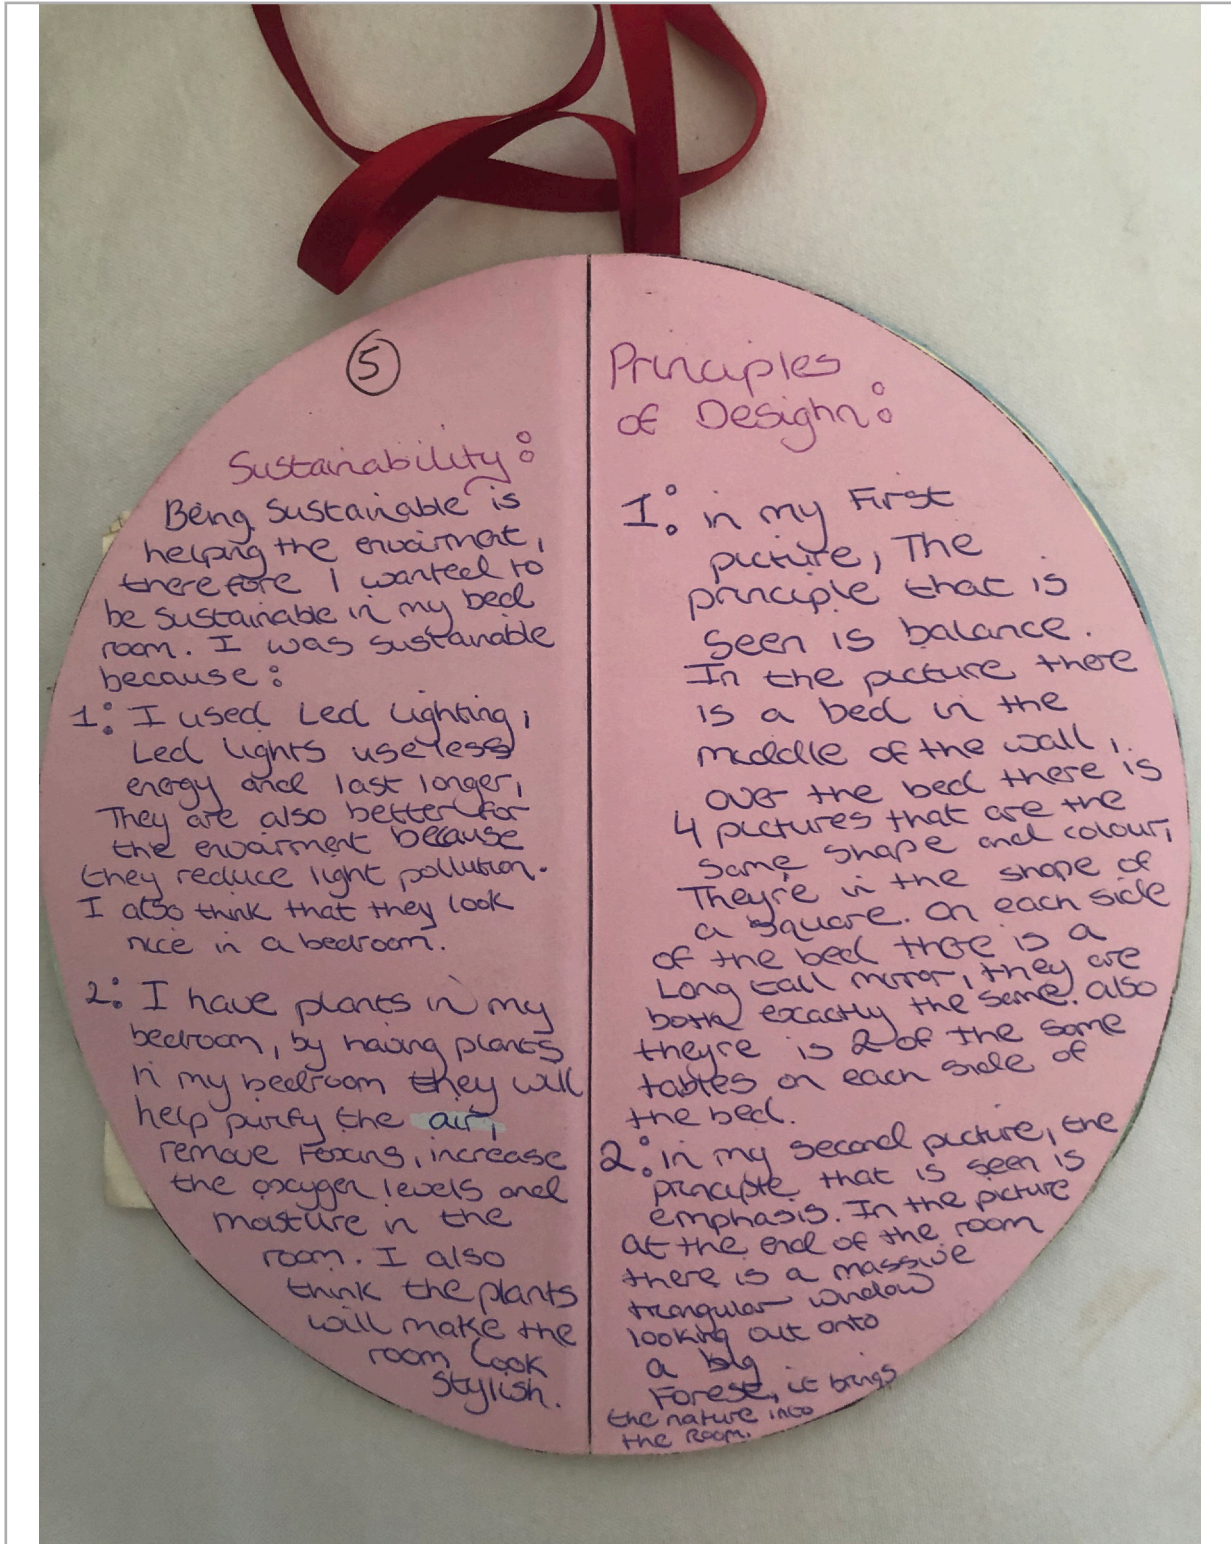 5
Sustainability:
Being sustainable is
helping the enoirment,
therefore I wanted to
be sustainable in my bed
room. I was sustainable
because:
1: I used Led Lighting,
Led lights use less
energy and last longer,
They are also better for
the enoirment because
they reduce light pollution.
I also think that they look
nice in a bedroom.
2: I have plants in my
bedroom, by having plants
in my bedroom they will
help purify the air,
remove toxins, increase
the oxygen levels and
moisture in the
room. I also
think the plants
will make the
room look
stylish.
Principles
of Desighn:
1: in my First
picture, The
principle that is
seen is balance.
In the picture there
is a bed in the
middle of the wall,
over the bed there is
4 pictures that are the
same shape and colour,
They're in the shape of
a square. On each side
of the bed there is a
Long tall mirror, they are
both exactly the same. also
theyre is 2 of the same
tables on each side of
the bed.
2: in my second picture, the
principle that is seen is
emphasis. In the picture
at the end of the room
there is a massive
triangular window
looking out onto
a big
Forest, it brings
the nature into
the room.